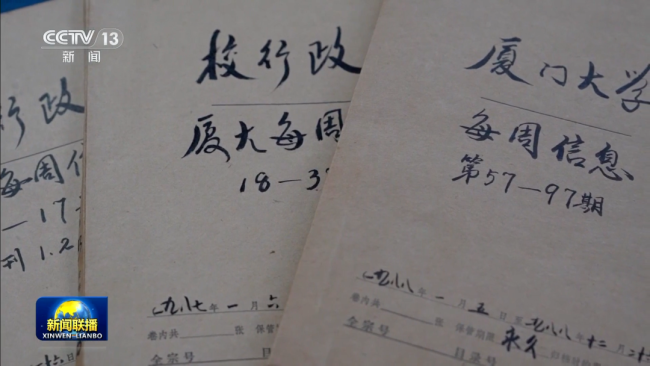 CCTV 13
新闻
行政
每周信
17
刊1.2
校行政
厦大每周
18-3
一九八七年一月六
卷内共 张 保管
全宗号
厦门大学
每周信息
第57-97期
一九八八年一月五日至一九八八年十二月二十
卷内共 张 保管期限 永久
全宗号 目录号
新闻联播
XINWEN LIANBO